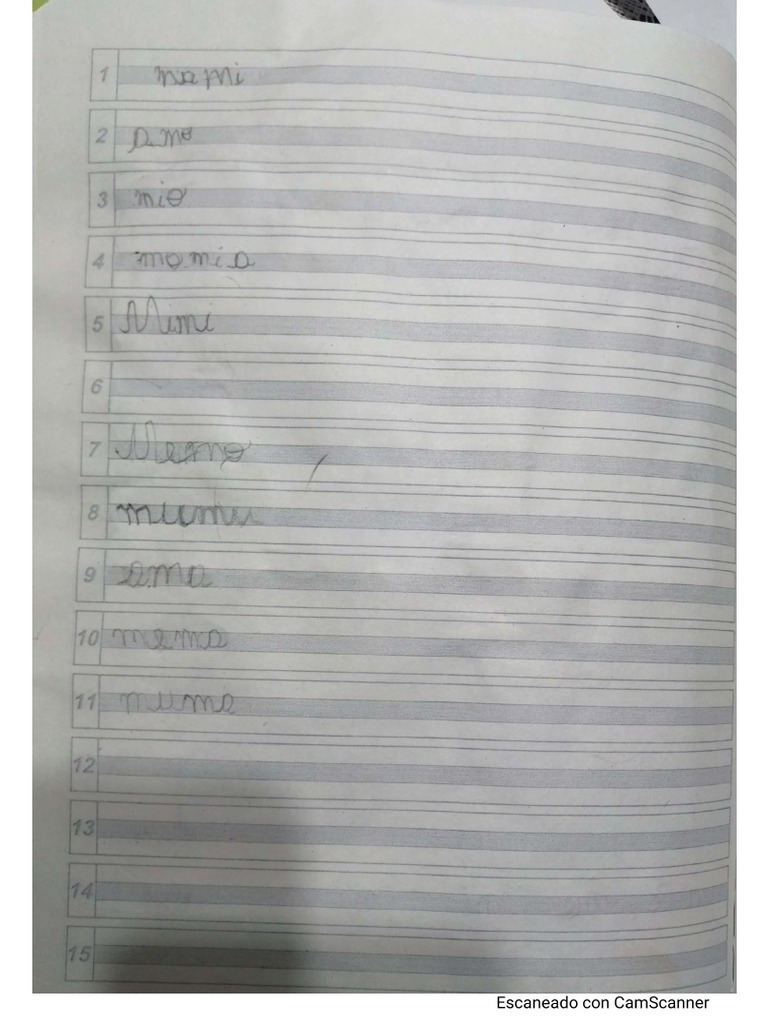 1 mami
2 amo
3 mio
4 momia
5 Mimi
6
7 Memo
8 mumu
9 ama
10 mema
11 muma
12
13
14
15
Escaneado con CamScanner